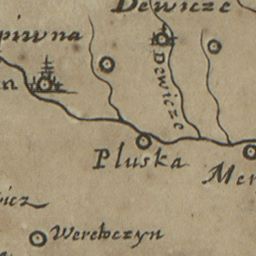 Dewicze
piwna
Dewicze
n
Pluska
Mer
icz
Werebczyn